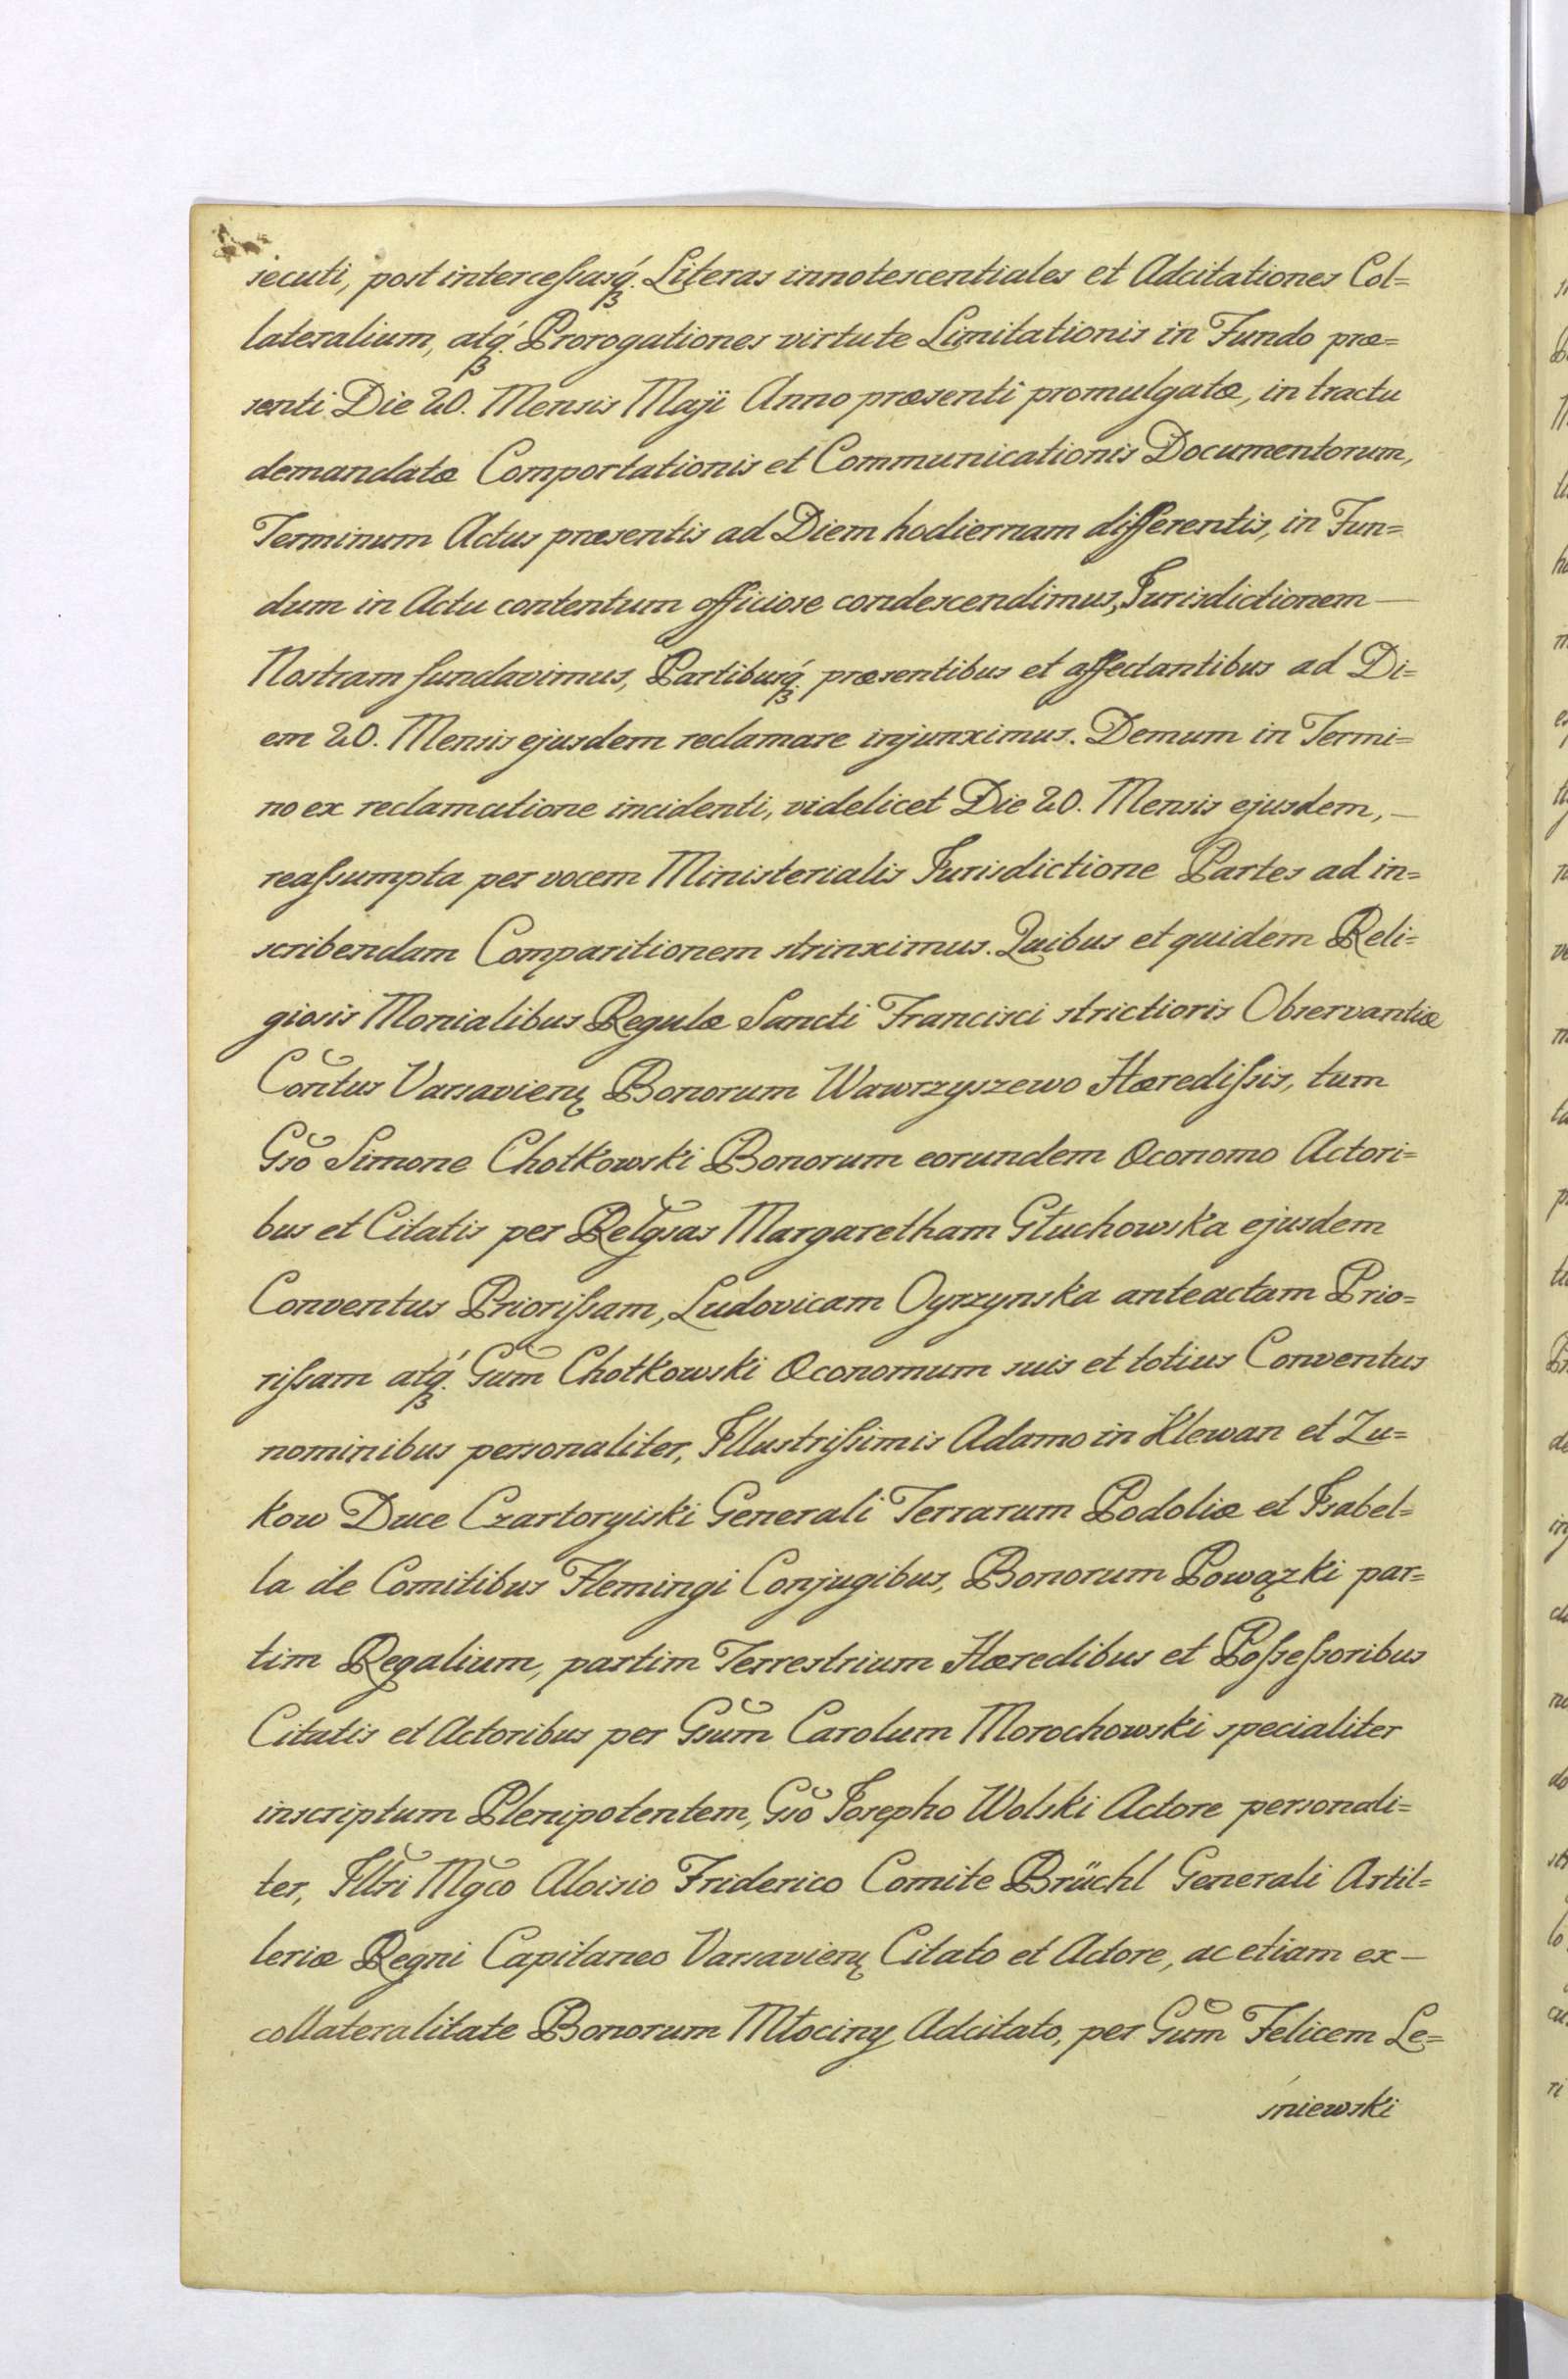 secuti, post intercessasq́ꝫ. Literas innotescentiales et Adcitationes Col=
lateralium, atq́ꝫ. Prorogationes virtute Limitationis in Fundo præ=
senti Die 20. Mensis Maji Anno præsenti promulgatæ, in tractu
demandatæ Comportationis et Communicationis Documentorum,
Terminum Actus præsentis ad Diem hodiernam differentis, in Fun=
dum in Actu contentum officiose condescendimus, Jurisdictionem —
Nostram fundavimus, Partibusq́ꝫ præsentibus et affectantibus ad Di=
em 20. Mensis ejusdem reclamare injunximus. Demum in Termi=
no ex reclamatione incidenti, videlicet Die 20. Mensis ejusdem, —
reassumpta per vocem Ministerialis Jurisdictione Partes ad in=
scribendam Comparitionem strinximus. Quibus et quidem Reli=
giosis Monialibus Regulæ Sancti Francisci strictioris Observantiæ
Contus Varsavien̨ Bonorum Wawrzyszewo Hæredissis, tum
Gsõ Simone Chotkowski Bonorum eorundem Œconomo Actori=
bus et Citatis per Relgsas Margaretham Głuchowska ejusdem
Conventus Priorissam, Ludovicam Oyrzynska anteactam Prio=
rissam atq́ꝫ. Gum̃ Chotkowski Œconomum suis et totius Conventus
nominibus personaliter, Illustrissimis Adamo in Klewan et Zu=
kow Duce Czartoryiski Generali Terrarum Podoliæ et Isabel=
la de Comitibus Flemingi Conjugibus, Bonorum Powązki par=
tim Regalium, partim Terrestrium Hæredibus et Possessoribus
Citatis et Actoribus per Gsum̃ Carolum Morochowski specialiter
inscriptum Plenipotentem, Gsõ Josepho Wolski Actore personali=
ter, Illri Mgco Aloisio Friderico Comite Brüchl Generali Artil=
leriæ Regni Capitaneo Varsavien̨ Citato et Actore, ac etiam ex —
collateralitate Bonorum Młociny Adcitato, per Gum̃ Felicem Le=
śniewski